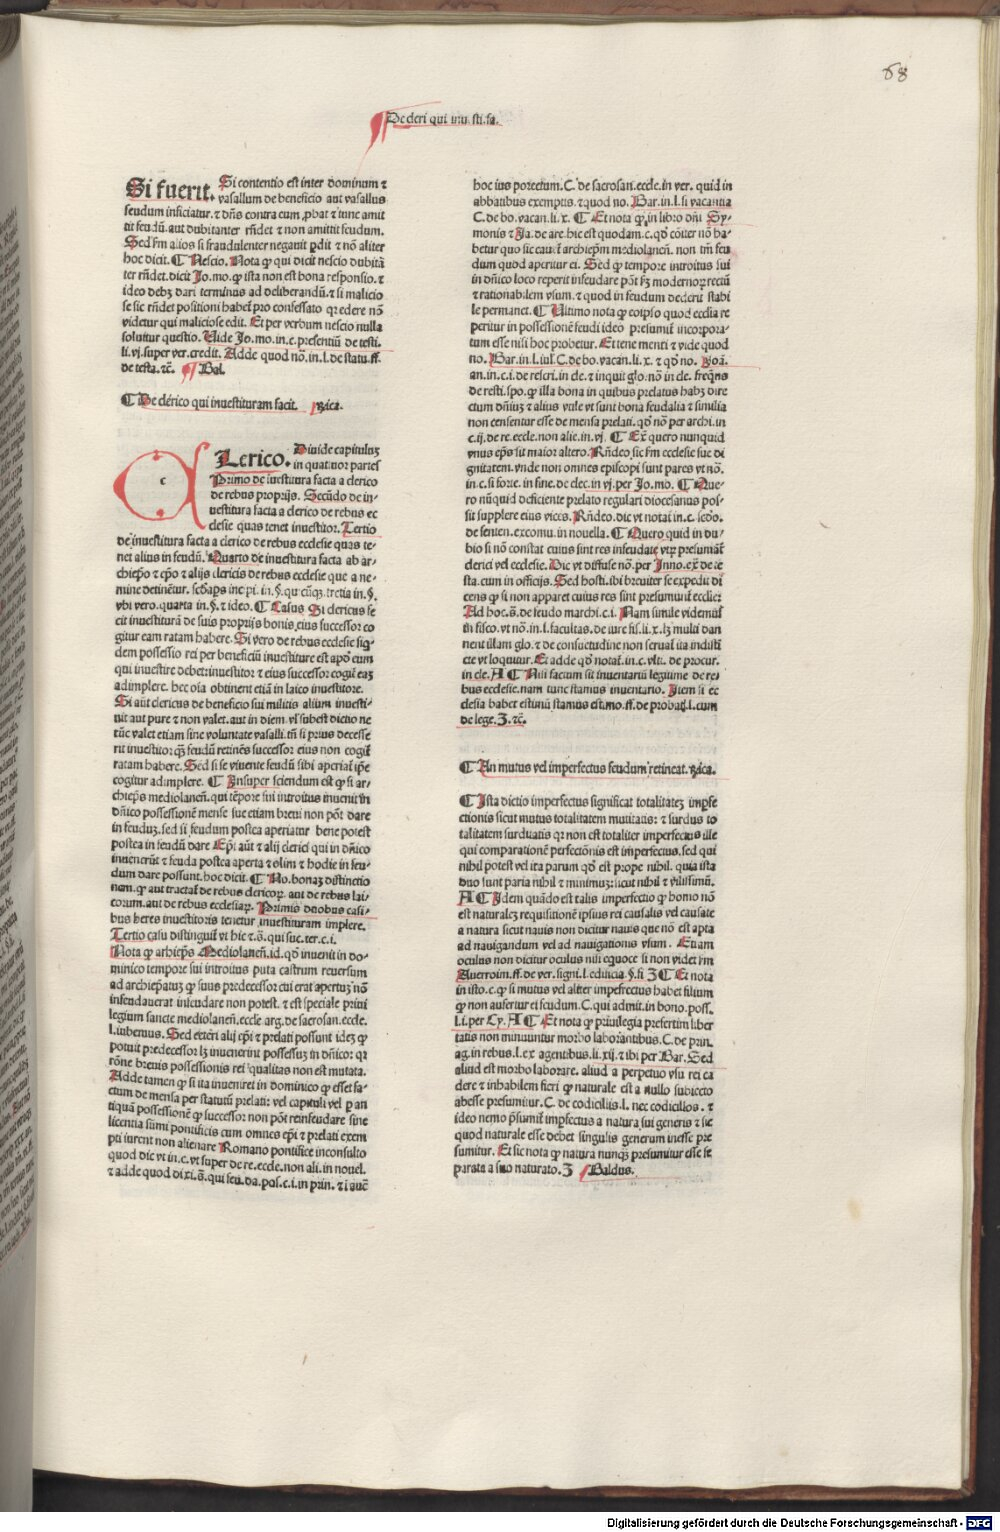 68
De cleri qui inu. sti. fa.
Si fuerit. Si contentio est inter dominum ⁊
vasallum de beneficio aut vasallus
feudum inficiatur. ⁊ dñs contra eum ꝓbat ⁊ tunc amit
tit feudũ. aut dubitanter rñdet ⁊ non amittit feudum.
Sed ẜm alios si fraudulenter negauit ꝑdit ⁊ nõ aliter
hoc dicit. ¶ Nescio. Nota ꝙ qui dicit nescio dubitã
ter rñdet. dicit Jo. mo. ꝙ ista non est bona responsio. ⁊
ideo debꝫ dari terminus ad deliberandũ. ⁊ si malicio
se sic rñdet positioni habet᷑ pro confessato qꝛ edere nõ
videtur qui maliciose edit. Et per verbum nescio nulla
soluitur questio. Vide Jo. mo. in. c. presentiũ de testi.
li. vj. super ver. credit. Adde quod nõ. in. l. de statu. ff.
de testa. ⁊c̃. ¶ Bal.
¶ De clerico qui inuestituram facit. Rica.
c
Lerico. Diuide capitulũ
in quattuor partes
Primo de inuestitura facta a clerico
de rebus proprijs. Secũdo de in-
uestitura facta a clerico de rebus ec
clesie quas tenet inuestitor. Tertio
de inuestitura facta a clerico de rebus ecclesie quas te-
net alius in feudũ. Quarto de inuestitura facta ab ar-
chiep̃o ⁊ ep̃o ⁊ alijs clericis de rebus ecclesie que a ne-
mine detinẽtur. scd̃a ps incipi. in. §. qui cũqꝫ. tretia in. §.
vbi vero. quarta in. §. ⁊ ideo. ¶ Casus Si clericus fe-
cit inuestiturã de suis proprijs bonis, eius successor co
gitur eam ratam habere. Si vero de rebus ecclesie siqͥ
dem possessio rei per beneficiũ inuestiture est apđ eum
qui inuestire debet: inuestitor ⁊ eius successor cogit᷑ eaꝫ
adimplere. hec oĩa obtinent etiã in laico inuestitore.
Si aũt clericus de beneficio sui militis alium inuesti-
uit aut pure ⁊ non valet. aut in diem. vl̃ subest dictio ne
tũc valet etiam sine voluntate vasalli. tñ si prius decesse
rit inuestitor qꝫ feudũ retinẽs successor eius non cogit᷑
ratam habere. Sed si se viuente feudũ sibi aperiat᷑ ip̃e
cogitur adimplere. ¶ Insuper sciendum est ꝙ si ar-
chiep̃s mediolaneñ. qui tẽpore sui introitus inuenit in
dñico possessionẽ mense sue etiam breui non põt dare
in feuduꝫ. sed si feudum postea aperiatur bene potest
postea in feudũ dare Ep̃i aũt ⁊ alij clerici qui in dñico
inuenerũt ⁊ feuda postea aperta ⁊ olim ⁊ hodie in feu-
dum dare possunt. hoc dicit. ¶ No. bonaꝫ distinctio
nem. ꝙ aut tractat᷑ de rebus clericoꝝ. aut de rebus lai-
corum. aut de rebus ecclesiaꝝ. Primis duobus casi-
bus heres inuestitoris tenetur inuestituram implere.
Tertio casu distinguit᷑ vt hic ⁊. s̃. qui suc. ter. c. i.
Nota ꝙ arhiep̃s Mediolaneñ. id. qđ inuenit in do-
minico tempore sui introitus puta castrum reuersum
ad archiep̃atuꝫ ꝙ suus predecessor cui erat apertuꝫ nõ
infeudauerat infeudare non potest. ⁊ est speciale priui
legium sancte mediolaneñ. eccle. arg. de sacrosan. eccle.
l. iubemus. Sed exteri alij ep̃i ⁊ prelati possunt ideꝫ ꝙ
potuit predecessor lꝫ inuenerint possessuꝫ in dñico: qꝛ
rõne breuis possessionis rei qualitas non est mutata.
Adde tamen ꝙ si ita inueniret in dominico ꝙ esset fa-
ctum de mensa per statutũ prelati: vel capituli vel ꝑ an
tiquã possessionẽ ꝙ successor non põt reinfeudare sine
licentia sũmi pontificis cum omnes ep̃i ⁊ prelati exem
pti iurent non alienare Romano pontifice inconsulto
quod dic vt in. c. vt super de re. eccle. non ali. in nouel.
⁊ adde quod dixi. s̃. qui feu. da. pos. c. i. in prin. ⁊ i quẽ
hoc ius porrectum. C. de sacrosan. eccle. in ver. quid in
abbatibus exemptis. ⁊ quod no. Bar. in. l. si vacantia
C. de bo. vacan. li. x. ¶ Et nota ꝙ in libro dñi Sy-
monis ⁊ Ja. de are. hic est quodam. c. qđ cõiter nõ ha-
betur quo sic cauet᷑ archiep̃m mediolaneñ. non tm̃ feu
dum quod aperitur ei. Sed ꝙ tempore introitus sui
in dñico loco reperit infeudare põt ẜꝫ modernoꝝ rectũ
⁊ rationabilem vsum. ⁊ quod in feudum dederit stabi
le permanet. ¶ Ultimo nota ꝙ eoipso quod ecclia re
peritur in possessionẽ feudi ideo presumit᷑ incorpora-
tum esse nisi hoc probetur. Et tene menti ⁊ vide quod
no. Bar. in. l. iul̃. C. de bo. vacan. li. x. ⁊ qđ no. Joã.
an. in. c. i. de rescri. in cle. ⁊ inquit glo. nõ in cle. freq̃ns
de resti. spo. ꝙ illa bona in quibus prelatus habꝫ dire
ctum dñiuꝫ ⁊ alius vtile vt sunt bona feudalia ⁊ similia
non censentur esse de mensa prelati. qđ nõ per archi. in
c. ij. de re. eccle. non alie. in. vj. ¶ Ex̃ quero nunquid
vnus ep̃s sit maior altero. Rñdeo sic ẜm ecclesie sue di
gnitatem. vnde non omnes episcopi sunt pares vt nõ.
in. c. si forte. in fine. de elec. in vj. per Jo. mo. ¶ Que-
ro nũquid deficiente prelato regulari diocesanus pos-
sit supplere eius vices. Rñdeo. dic vt notat᷑ in. c. scđo.
de senten. excomu. in nouella. ¶ Quero quid in du-
bio si nõ constat cuius sint res infeudate vtꝝ presumãt᷑
clerici vel ecclesie. Dic vt diffuse nõ. per Inno. ex̃. de te
sta. cum in officijs. Sed hosti. ibi breuiter se expedit di
cens ꝙ si non apparet cuius res sint presumunt᷑ ecclie.
Ad hoc. s̃. de feudo marchi. c. i. Nam simile videmus
in fisco. vt nõ. in. l. facultas. de iure fis. li. x. lꝫ multi dan
nent illam glo. ⁊ de consuetudine non seruat᷑ ita indisti
cte vt loquitur. Et adde qđ notat᷑. in. c. vlti. de procur.
in cle. A ¶ Nisi factum sit inuentariũ legitime de re-
bus ecclesie. nam tunc stamus inuentario. Item si ec
clesia habet estimũ stamus estimo. ff. de probat᷑. l. cum
de lege. Z. ⁊c̃.
¶ An mutus vel imperfectus feudum retineat. Rica.
¶ Ista dictio imperfectus significat totalitateꝫ impfe
ctionis sicut mutus totalitatem mutitatis: ⁊ surdus to
talitatem surditatis qꝛ non est totaliter imperfectus ille
qui comparationẽ perfectionis est imperfectus. sed qui
nihil potest vel ita parum qđ est prope nihil. quia ista
duo sunt paria nihil ⁊ minimuꝫ: sicut nihil ⁊ vilissimũ.
A ¶ Idem quãdo est talis imperfectio ꝙ homo nõ
est naturaleꝫ requisitionẽ ipsius rei causalis vel causate
a natura sicut nauis non dicitur nauis que nõ est apta
ad nauigandum vel ad nauigationis vsum. Etiam
oculus non dicitur oculus nisi equoce si non videt ẜm
Auerroim. ff. de ver. signi. l. educia. §. fi Z ¶ Et nota
in isto. c. ꝙ si mutus vel aliter impefrectus habet filium
ꝙ non aufertur ei feudum. C. qui admit. in bono. poss.
l. i. per Cy. A ¶ Et nota ꝙ priuilegia presertim liber
tatis non minuuntur morbo laborantibus. C. de prin.
ag. in rebus. l. ex agentibus. li. xij. ⁊ ibi per Bar. Sed
aliud est morbo laborare. aliud a perpetuo vsu rei ca
dere ⁊ inhabilem fieri ꝙ naturale est a nullo subiecto
abesse presumitur. C. de codicillis. l. nec codicillos. ⁊
ideo nemo p̃sumit᷑ imꝑfectus a natura sui generis ⁊ sic
quod naturale esse debet singulis generum inesse pre
sumitur. Et sic nota ꝙ natura nunqꝫ presumitur esse se
parata a suo naturato. Z ¶ Baldus.
Digitalisierung gefördert durch die Deutsche Forschungsgemeinschaft - DFG